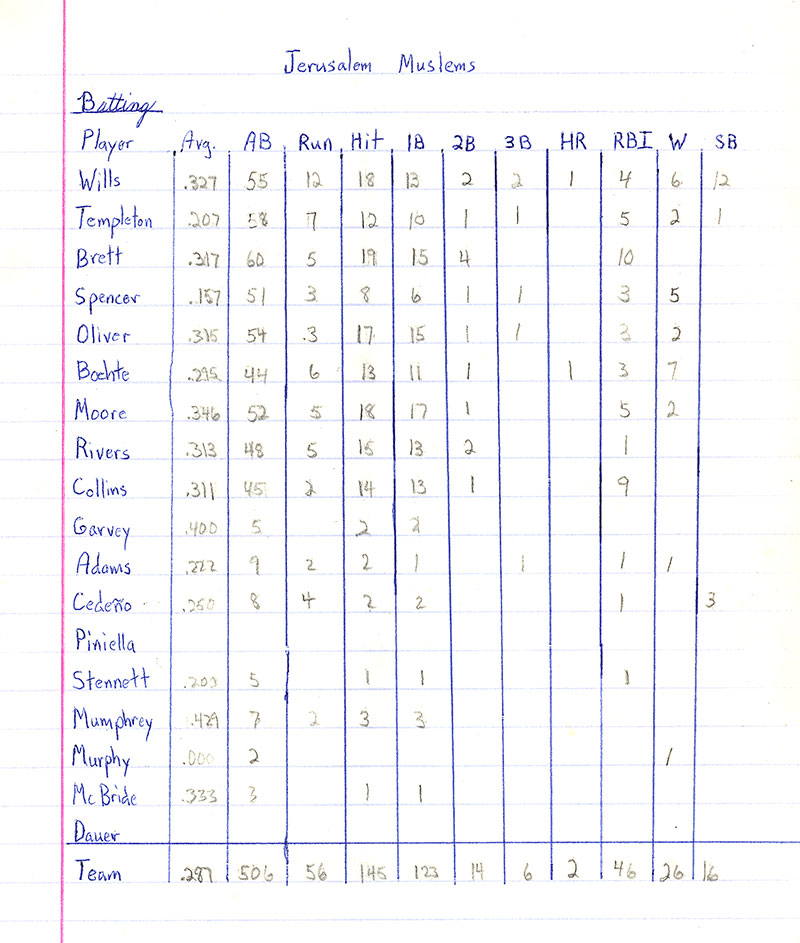 Jerusalem Muslems
Batting
Player Avg. AB Run Hit 1B 2B 3B HR RBI W SB
Wills .327 55 12 18 13 2 2 1 4 6 12
Templeton .207 58 7 12 10 1 1 5 2 1
Brett .317 60 5 19 15 4 10
Spencer .157 51 3 8 6 1 1 3 5
Oliver .315 54 3 17 15 1 1 3 2
Bochte .295 44 6 13 11 1 1 3 7
Moore .346 52 5 18 17 1 5 2
Rivers .313 48 5 15 13 2 1
Collins .311 45 2 14 13 1 9
Garvey .400 5 2 2
Adams .222 9 2 2 1 1 1 1
Cedeño .250 8 4 2 2 1 3
Piniella
Stennett .200 5 1 1 1
Mumphrey .429 7 2 3 3
Murphy .000 2 1
McBride .333 3 1 1
Dauer
Team .287 506 56 145 123 14 6 2 46 26 16